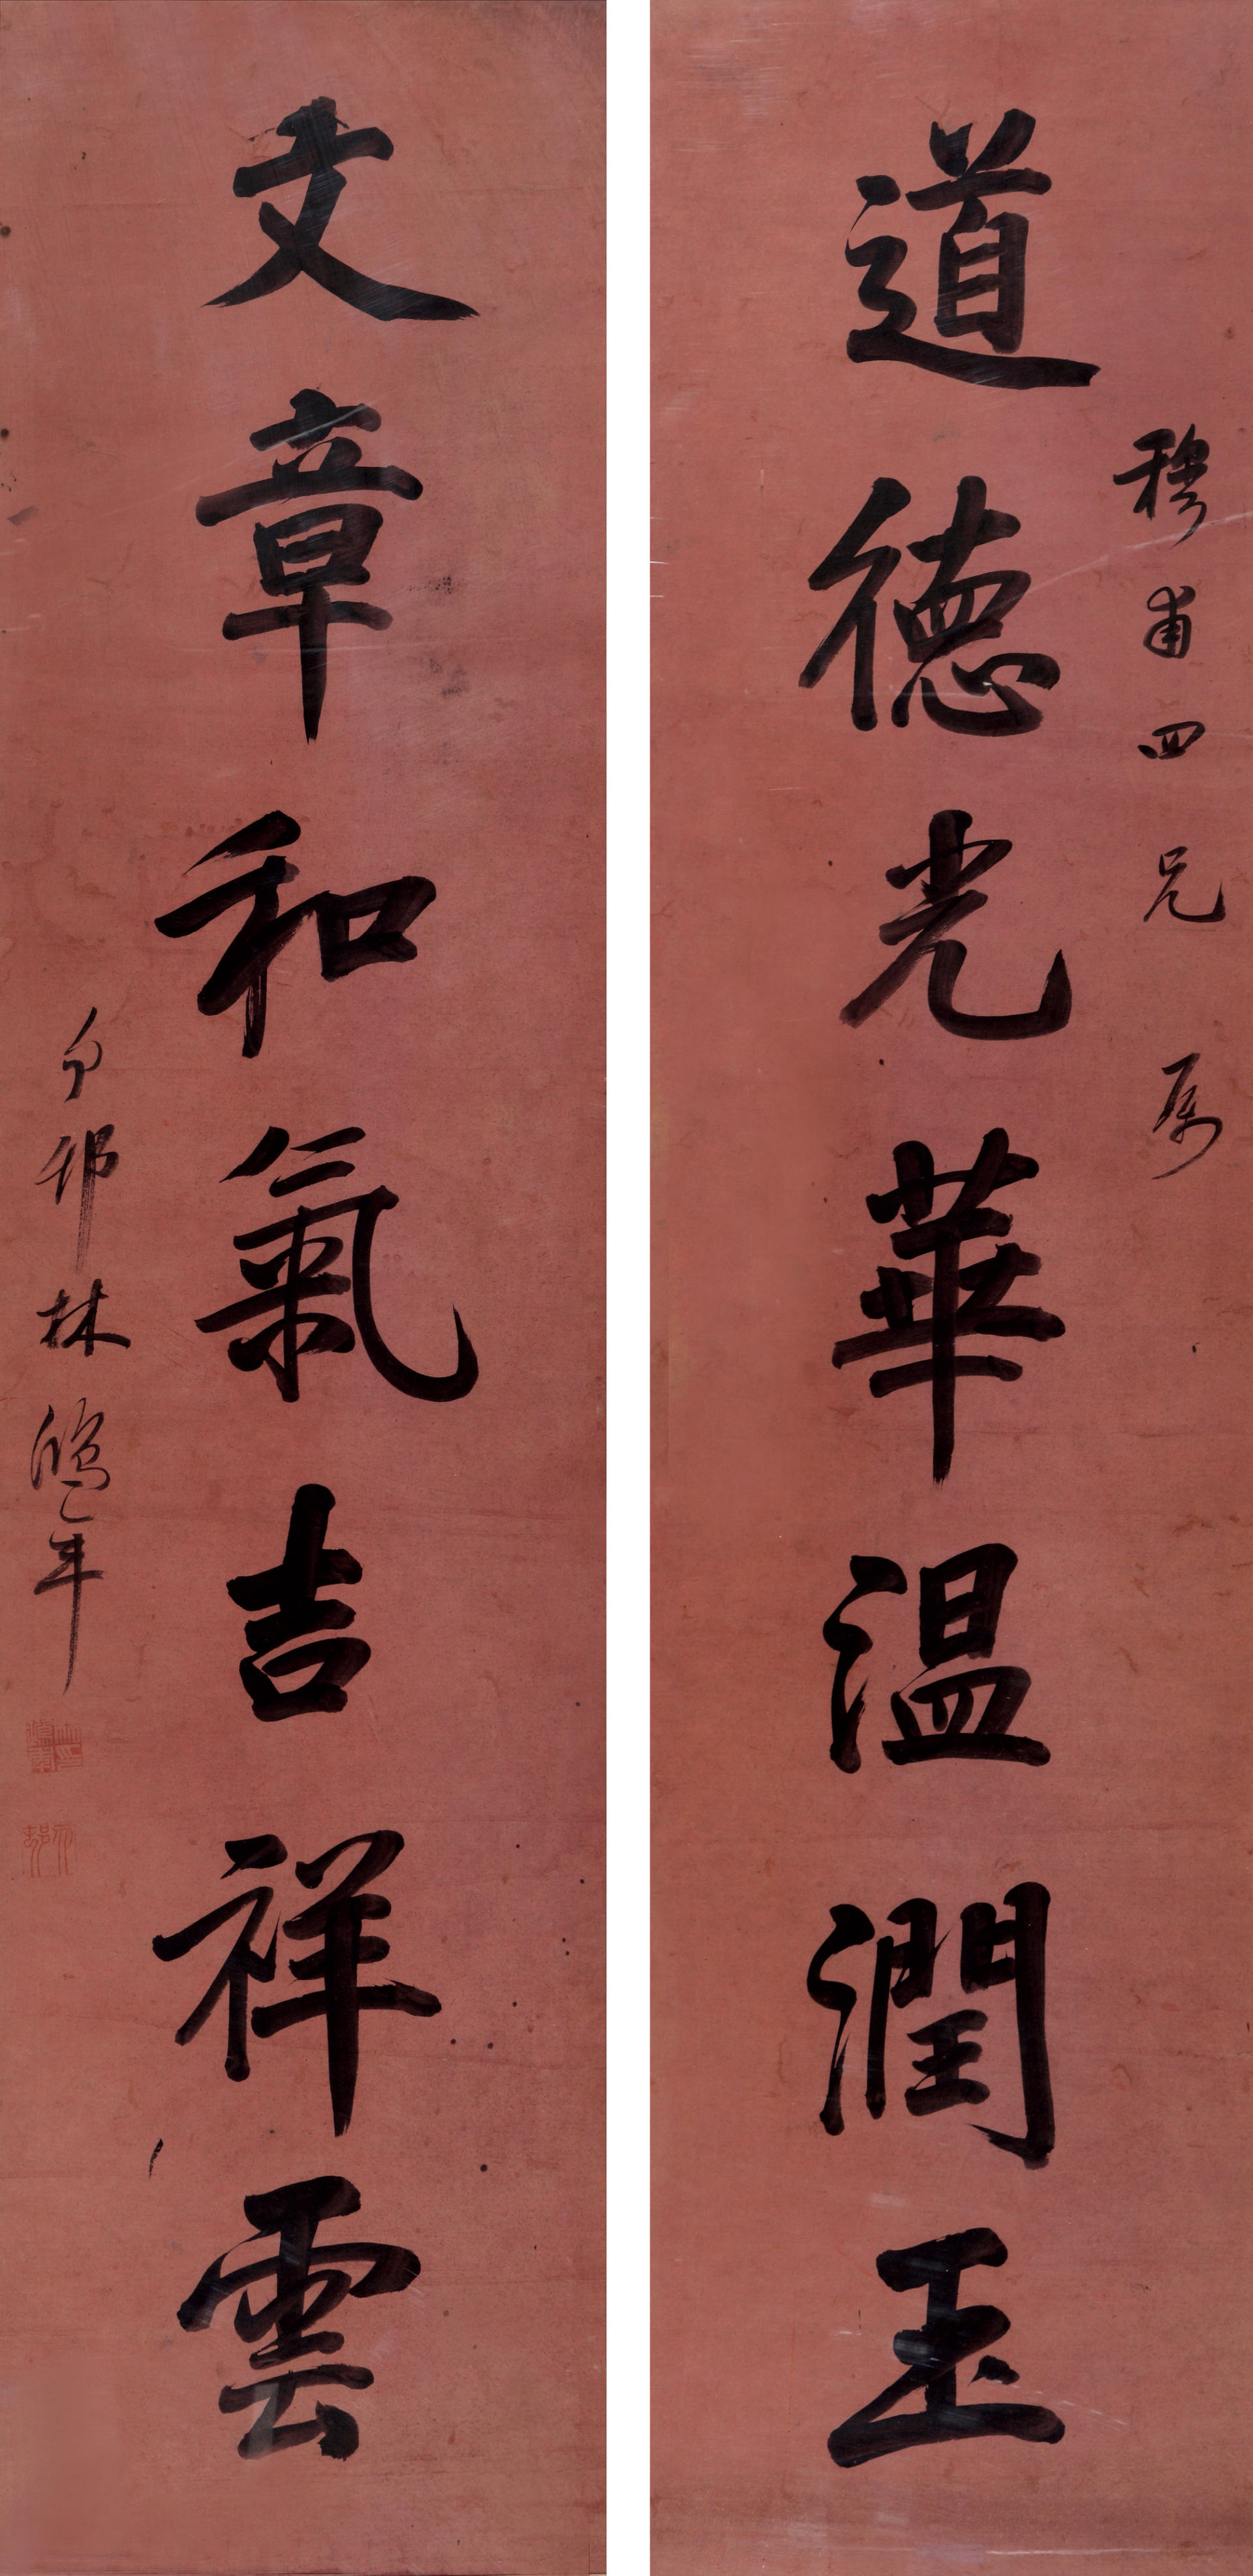 穆甫四兄属
道德光華温潤玉
文章和氣吉祥雲
丁卯林鴻年